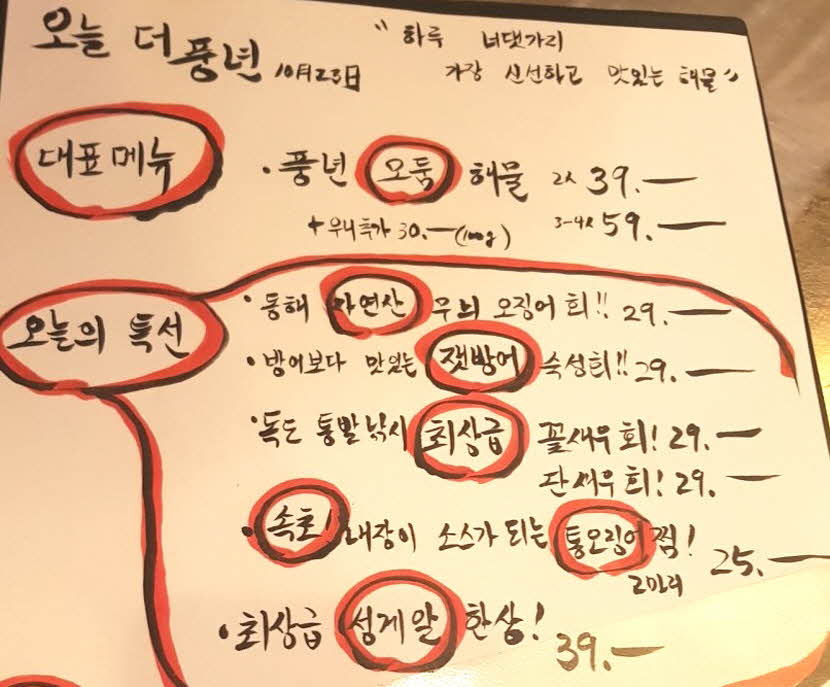 오늘 더 풍년 10月23日
"하루 너댓가리
가장 신선하고 맛있는 해물"
대표메뉴
· 풍년 모둠 해물 2人 39.—
+우니추가 30.—(100g) 3-4人 59.—
오늘의 특선
· 동해 자연산 무늬 오징어 회!! 29.—
· 방어보다 맛있는 잿방어 숙성회!! 29.—
· 독도 통발낚시 최상급 꽃새우 회! 29.—
단새우 회! 29.—
· 속초! 내장이 소스가 되는 통오징어 찜! 25.—
2마리
· 최상급 성게알 한상! 39.—